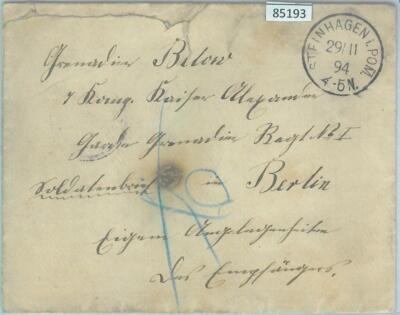 85193
STEINHAGEN I. POM.
29/11
94
4-5N.
Grenadier Below
7 Komp. Kaiser Alexander
Garde Grenadier Regt. No I
Soldatenbrief in Berlin
Eigene Angelegenheiten
Des Empfängers.